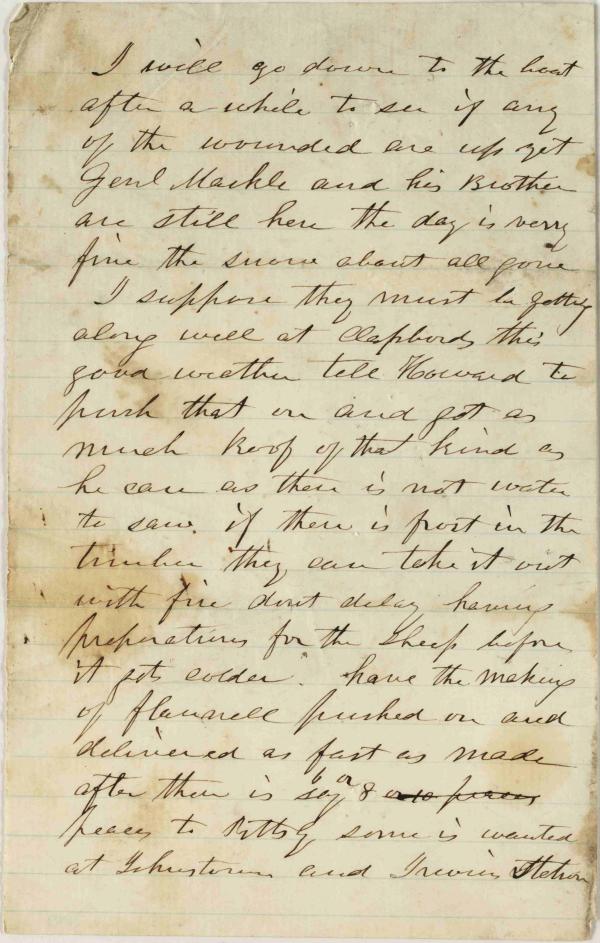 I will go down to the boat
after a while to see if any
of the wounded are up yet
Genl Markle and his Brother
are still here the day is verry
fine the snow about all gone
I suppose they must be getting
along well at Clapbords this
good weather tell Howard to
push that on and get as
much Roof of that kind as
he can as there is not water
to saw. if there is frost in the
timber they can take it out
with fire dont delay having
preperations for the Sheep before
it gets colder. have the making
of flannell pushed on and
delivered as fast as made
after there is say 6 or 8 or 10 peaces
peaces to Pittsg some is wanted
at Johnstown and Irwins Station